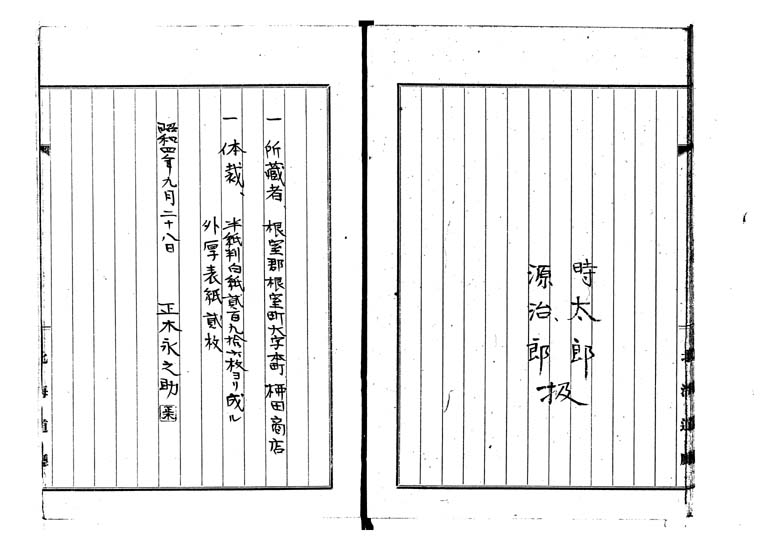 時太郎
源治郎
扱
一 所蔵者、根室郡根室町大字本町 柳田商店
一 体裁、半紙判白紙貳百九拾六枚ヨリ成ル
外厚表紙貳枚
昭和四年九月二十八日 正木永之助
北海道廳